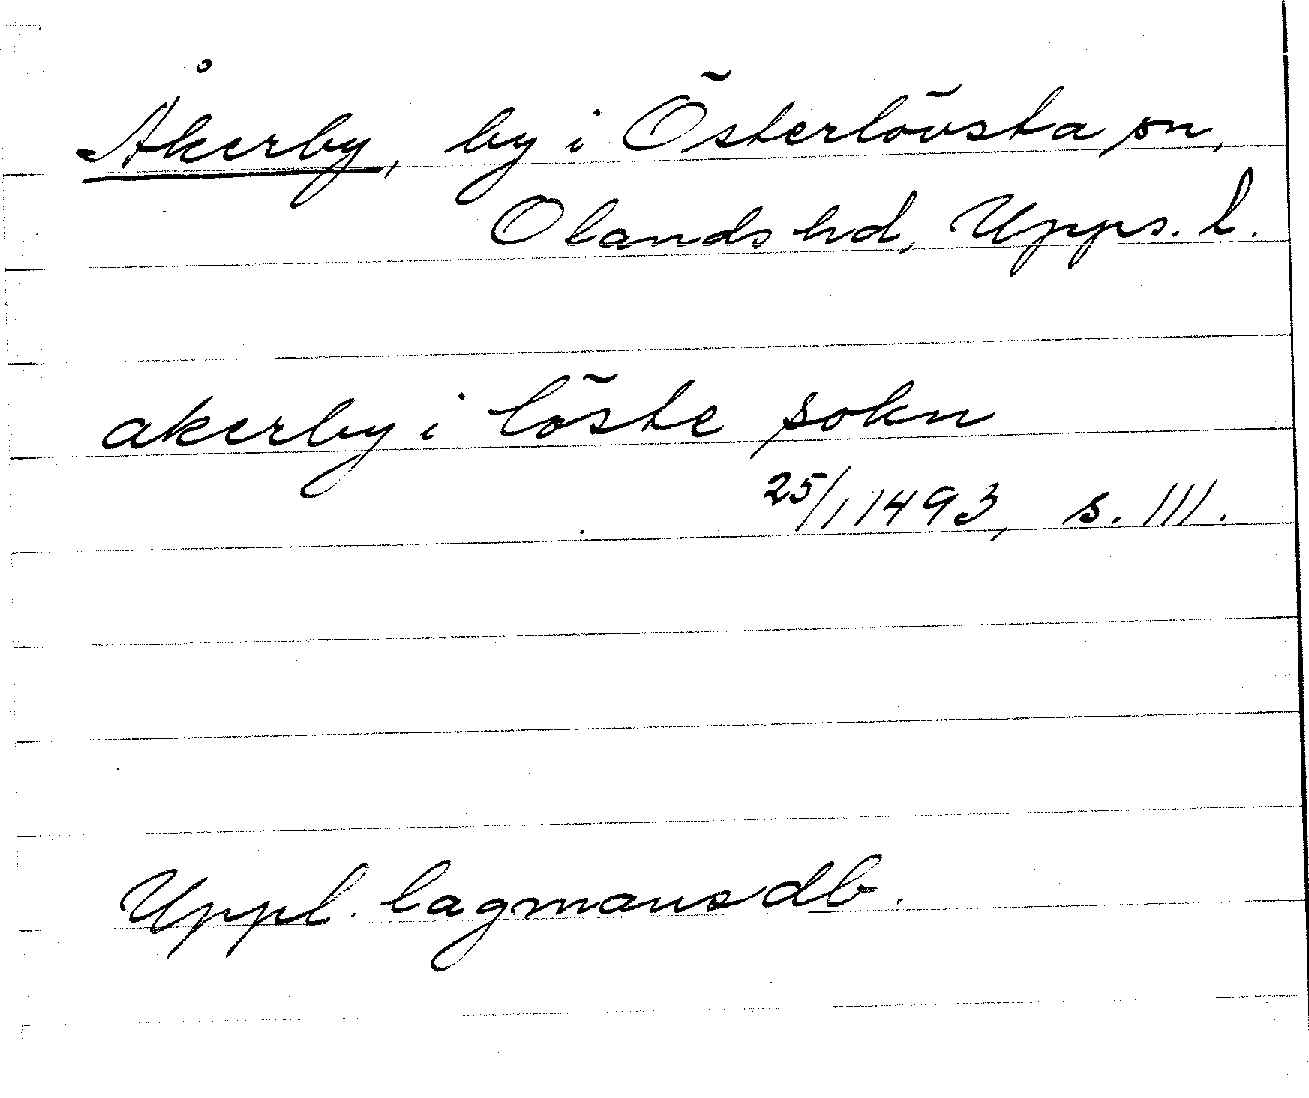 Åkerby, by i Österlövsta sn,
Olands hd, Upps. l.
akerby i löste sokn
25/1 1493, s. 111.
Uppl. lagmansdb.